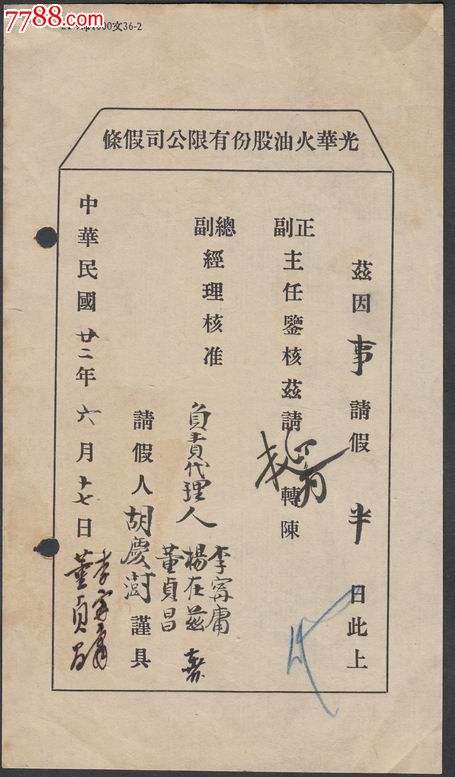 7788.com
光華火油股份有限公司假條
茲因事請假半日此上
正副主任鑒核茲請轉陳
總副經理核准
負責代理人
李甯庸
楊在茲
董貞昌
請假人胡慶澍謹具
中華民國廿二年六月十七日
董貞昌